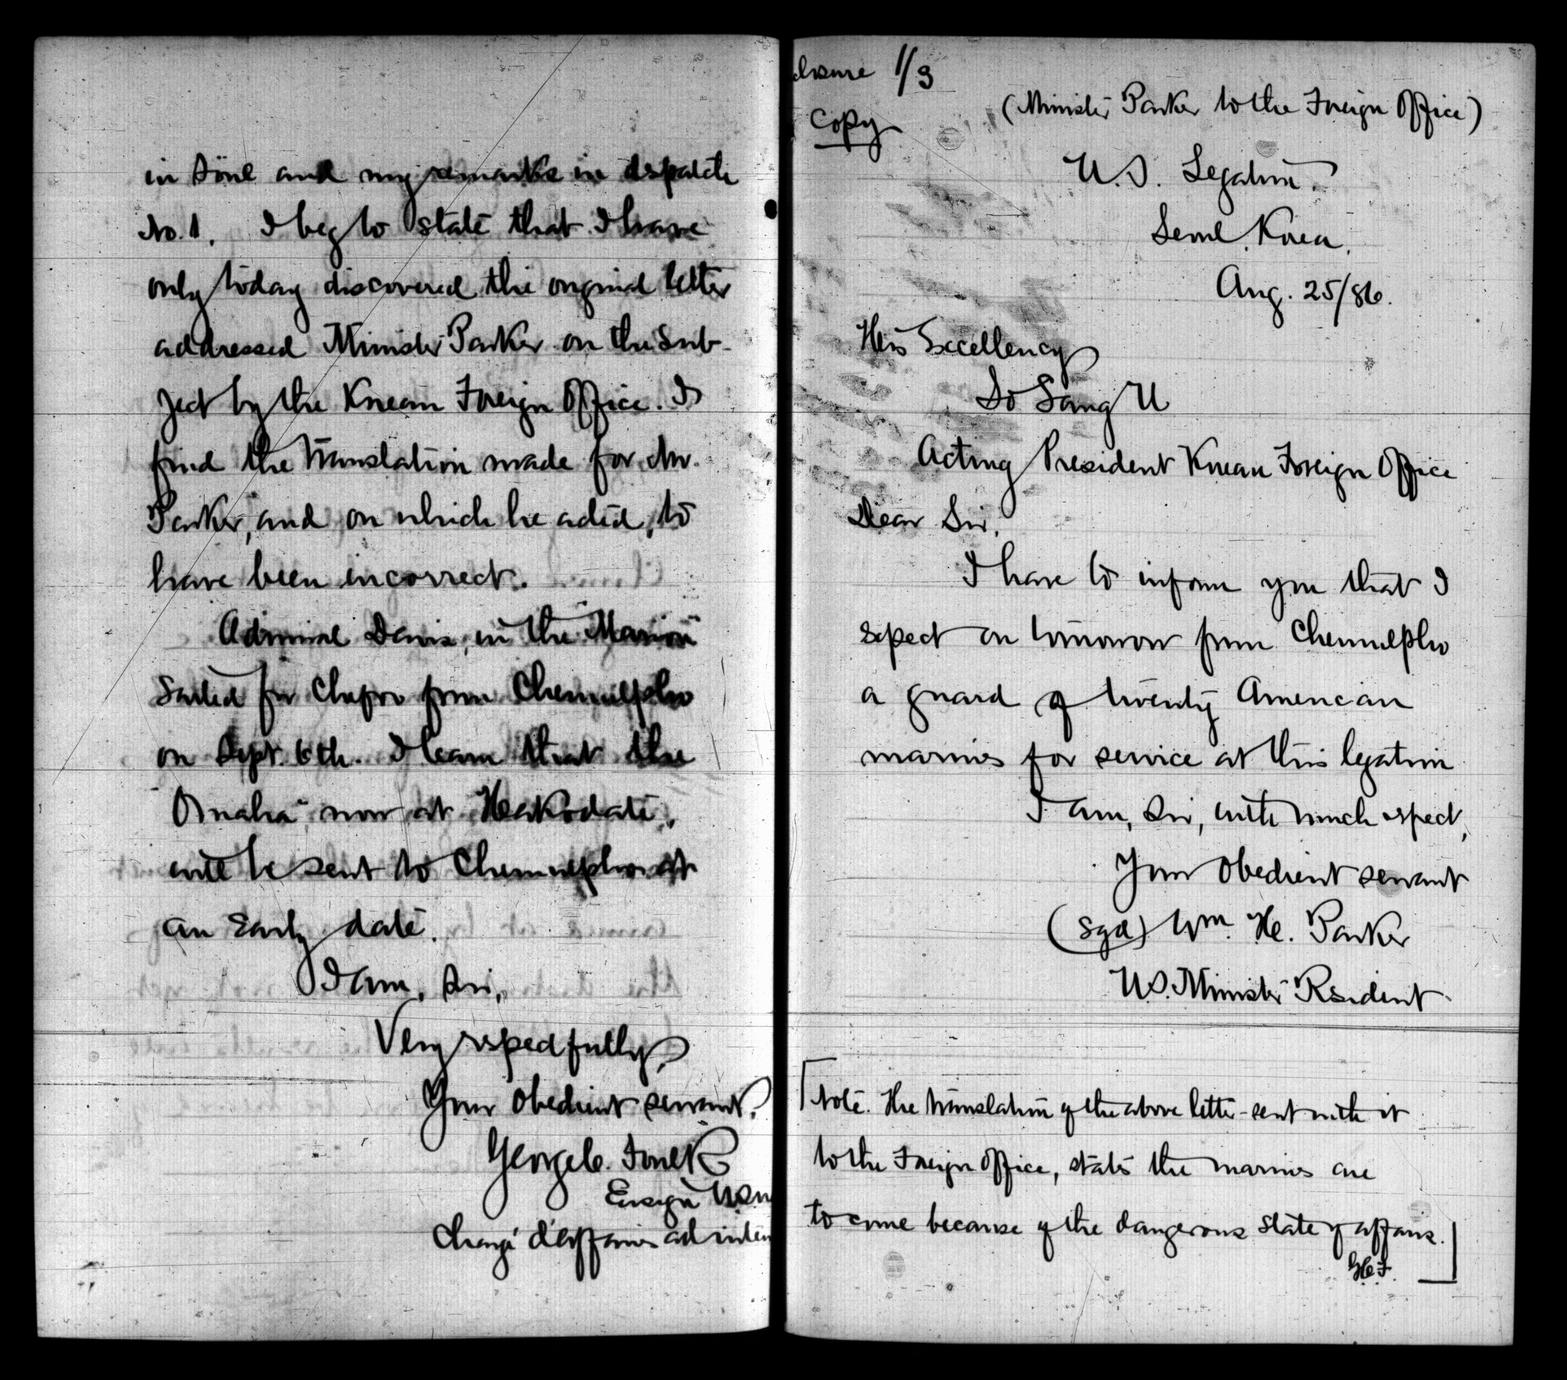 in Söul and my remarks in dispatch
No. 1. I beg to state that I have
only today discovered the original letter
addressed Minister Parker on the sub-
ject by the Korean Foreign Office. I
find the translation made for Mr.
Parker, and on which he acted, to
have been incorrect.
Admiral Davis, in the "Marion"
sailed for Chefoo from Chemulpho
on Sept. 6th. I learn that the
"Omaha" now at Hakodate,
will be sent to Chemulpho at
an early date.
I am, Sir,
Very respectfully,
Your obedient servant,
George C. Foulk
Ensign U.S.N
Chargé d'affaires ad inter
closure 1/3
Copy
(Minister Parker to the Foreign Office)
U.S. Legation.
Seoul, Korea.
Aug. 25/86.
His Excellency
So Sang U
Acting President Korean Foreign Office
Dear Sir.
I have to inform you that I
expect on tomorrow from Chemulpho
a guard of twenty American
marines for service at this legation
I am, Sir, with much respect,
Your obedient servant
(sgd) Wm. H. Parker
U.S. Minister Resident
[Note. The translation of the above letter sent with it
to the Foreign Office, states the marines are
to come because of the dangerous state of affairs.
G.C.F.]